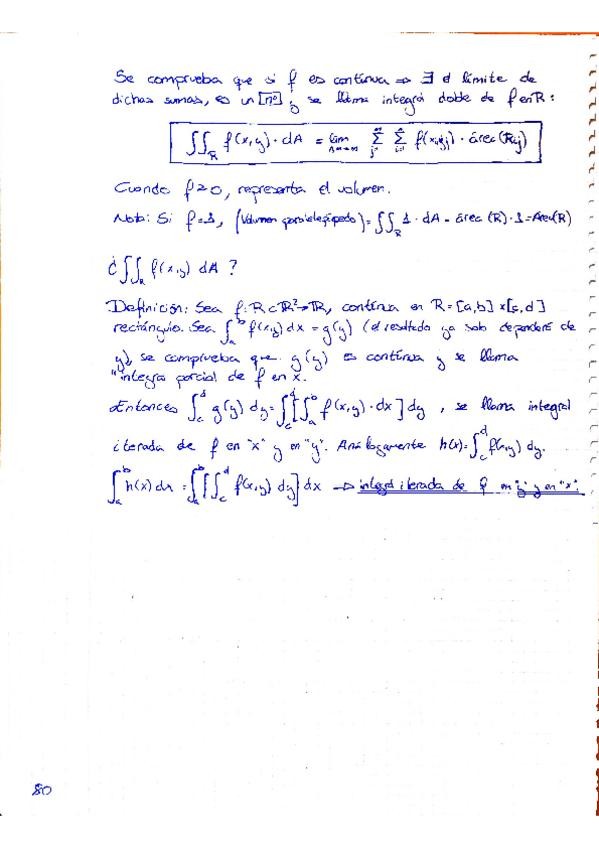 Se comprueba que si f es continua ⇒ ∃ el límite de
dichas sumas, es un nº y se llama integral doble de f en R:
∬_R f(x,y)·dA = lim Σ Σ f(x_i,y_j)·área(R_ij)
Cuando f≥0, representa el volumen.
Nota: Si f=1, (Volumen paralelepípedo) = ∬_R 1·dA = área(R)·1 = Area(R)
¿∬_R f(x,y) dA?
Definición: Sea f: R⊂ℝ²→ℝ, continua en R=[a,b]x[c,d]
rectángulo. Sea ∫_a^b f(x,y) dx = g(y) (el resultado ya solo dependerá de
y), se comprueba que g(y) es continua y se llama
"integral parcial de f en x.
Entonces ∫_c^d g(y) dy = ∫_c^d [∫_a^b f(x,y)·dx] dy, se llama integral
iterada de f en "x" y en "y". Análogamente h(x)=∫_c^d f(x,y) dy.
∫_a^b h(x) dx = ∫_a^b [∫_c^d f(x,y) dy] dx → integral iterada de f en "y" y en "x".
80